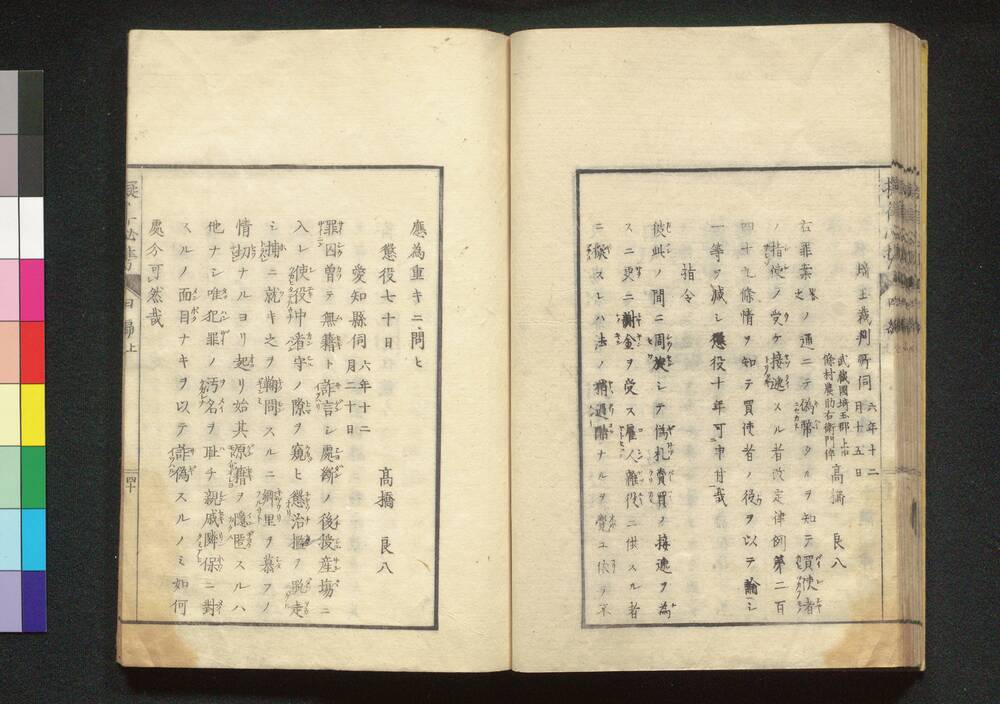 埼玉裁判所伺 六年十二月十五日
武藏國埼玉郡上
條村農助右衛門伜
高橋良八
右罪案ノ通ニテ偽幣タルヲ知テ買使者
ノ指使ヲ受ケ接逓スル者改定律例第二百
四十九條情ヲ知テ買使者ノ從ヲ以テ論シ
一等ヲ減シ懲役十年可申付哉
指令
彼此ノ間ニ周旋シテ偽札賣買ノ接逓ヲ為
スニ更ニ謝金ヲ受ス雇人雜役ニ供スル者
ニ擬スレハ法ノ稍過酷ナルヲ覺ユ依テ不
應為重キニ問ヒ
懲役七十日 高橋良八
愛知縣伺 六年十二月二十日
罪囚曽テ無籍ト詐言シ處斷ノ後授産場ニ
入レ使役中看守ノ隙ヲ窺ヒ懲治檻ヲ脱走
シ捕ニ就キ之ヲ鞠問スルニ郷里ヲ慕フノ
情切ナルヨリ起リ始其源籍ヲ隱匿スルハ
他ナシ唯犯罪ノ汚名ヲ耻チ親戚隣保ニ對
スルノ面目ナキヲ以テ詐偽スルノミ如何
處分可然哉
四十